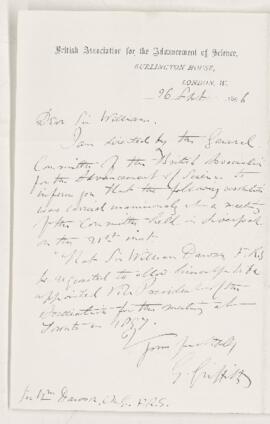 British Association for the Advancement of Science,
BURLINGTON HOUSE,
LONDON, W.
26 Sept. 1896
Dear Sir William,
I am directed by the General
Committee of the British Association
for the Advancement of Science to
inform you that the following resolution
was carried unanimously at a meeting
of the Committee held in Liverpool
on the 21st inst.
"That Sir William Dawson F.R.S.
be requested to allow himself to be
appointed Vice President of the
Association for the meeting at
Toronto in 1897."
Yours faithfully
G. Griffith
Sir Wm Dawson, C.M.G. F.R.S.